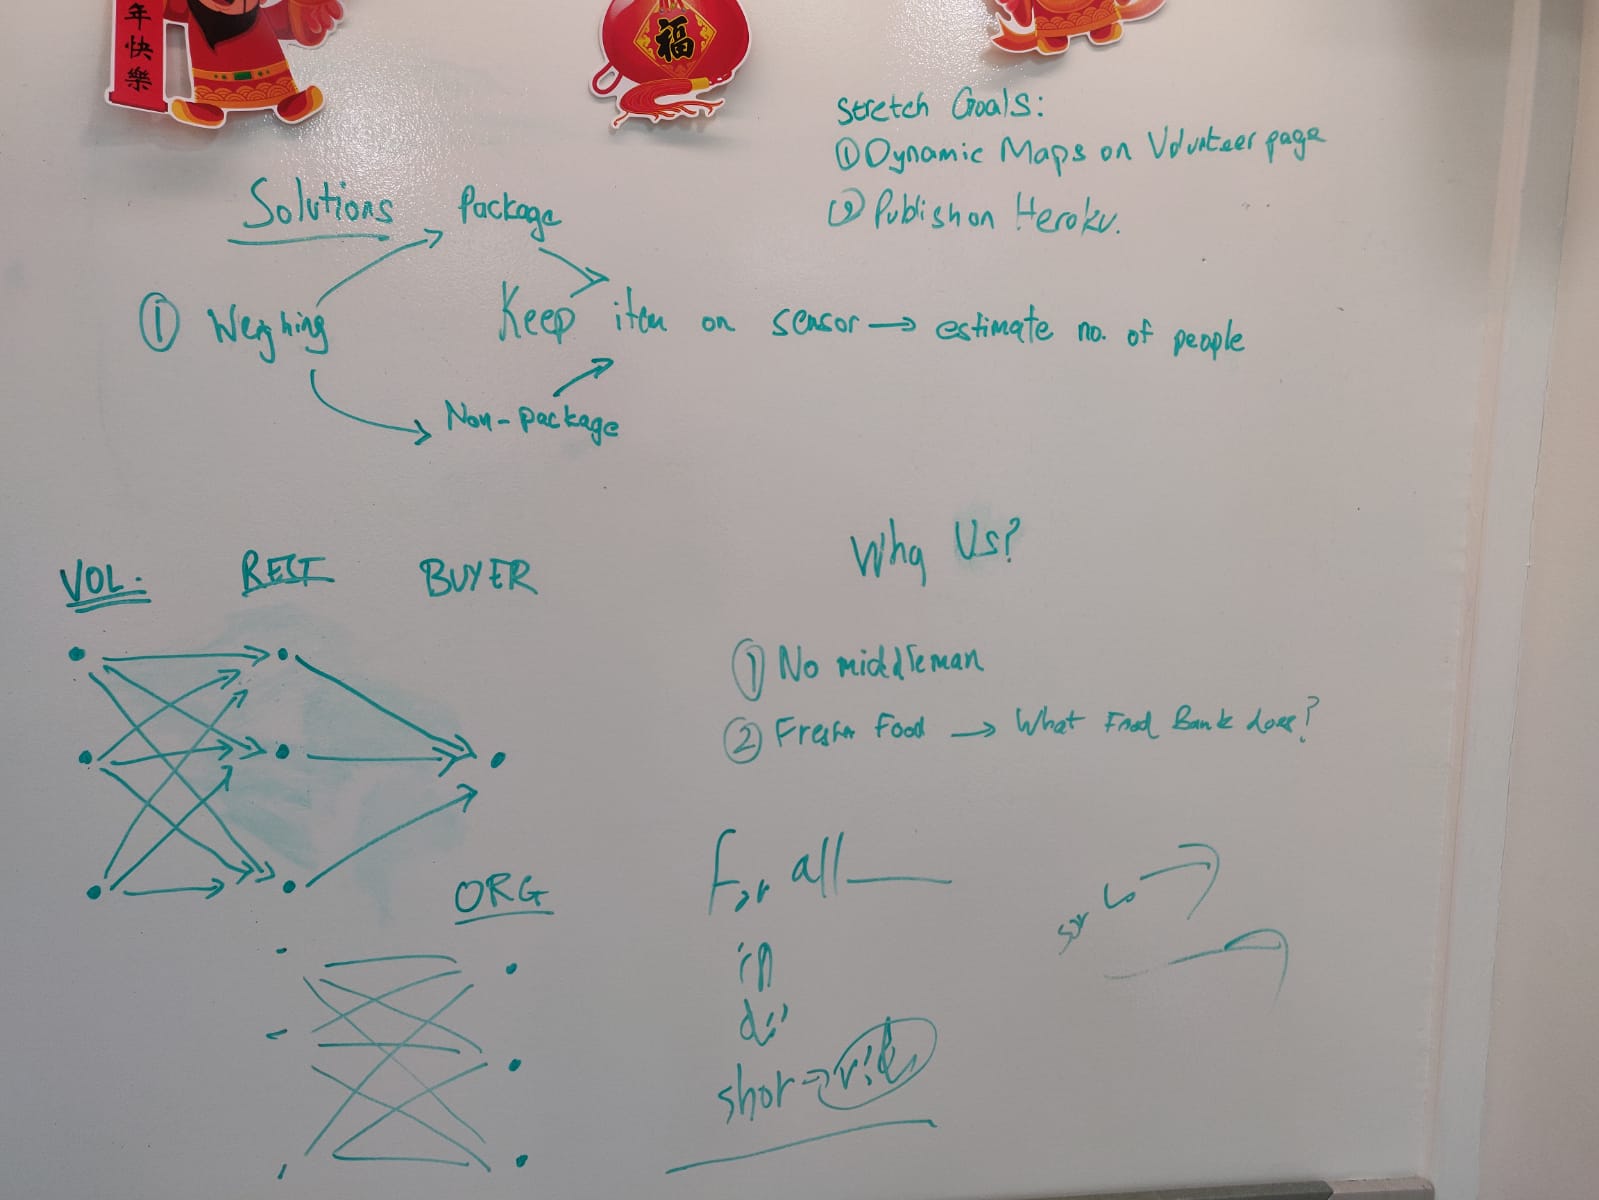 年快樂
福
Stretch Goals:
① Dynamic Maps on Volunteer page
② Publish on Heroku.
Solutions
Package
① Weighing
Keep item on sensor → estimate no. of people
Non-package
Why Us?
VOL.
REST
BUYER
① No middleman
② Fresher Food → What Food Bank does?
For all
ORG
in
shor →